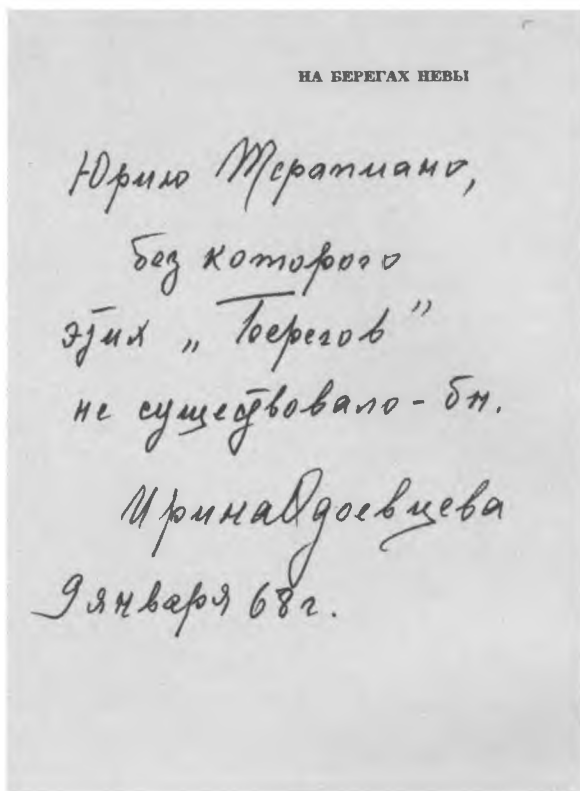 НА БЕРЕГАХ НЕВЫ
Юрию Терапиано,
без которого
этих „Берегов”
не существовало - бы.
Ирина Одоевцева
9 января 68 г.